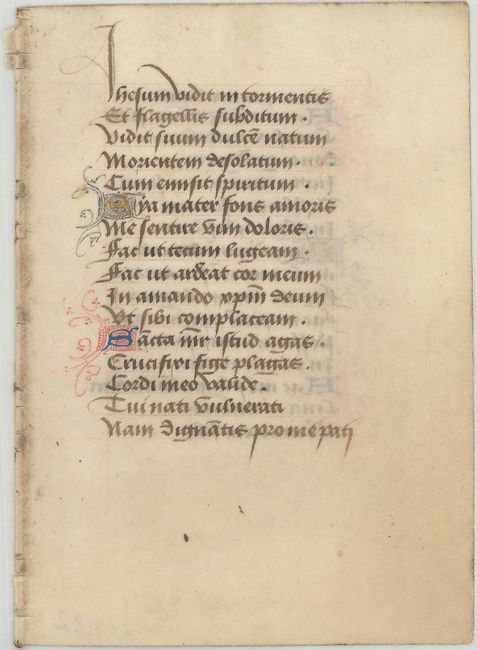 Jhesum vidit in tormentis
Et flagellis subditum .
Vidit suum dulcē natum
Morientem desolatum .
Cum emisit spiritum .
Eya mater fons amoris
Me sentire vim doloris .
Fac ut tecum lugeam .
Fac ut ardeat cor meum
In amando xpm̄ deum
Vt sibi complaceam .
Sācta mr̄ istud agas .
Crucifixi fige plagas .
Cordi meo valide .
Tui nati vulnerati
Nam dignātis pro me pati